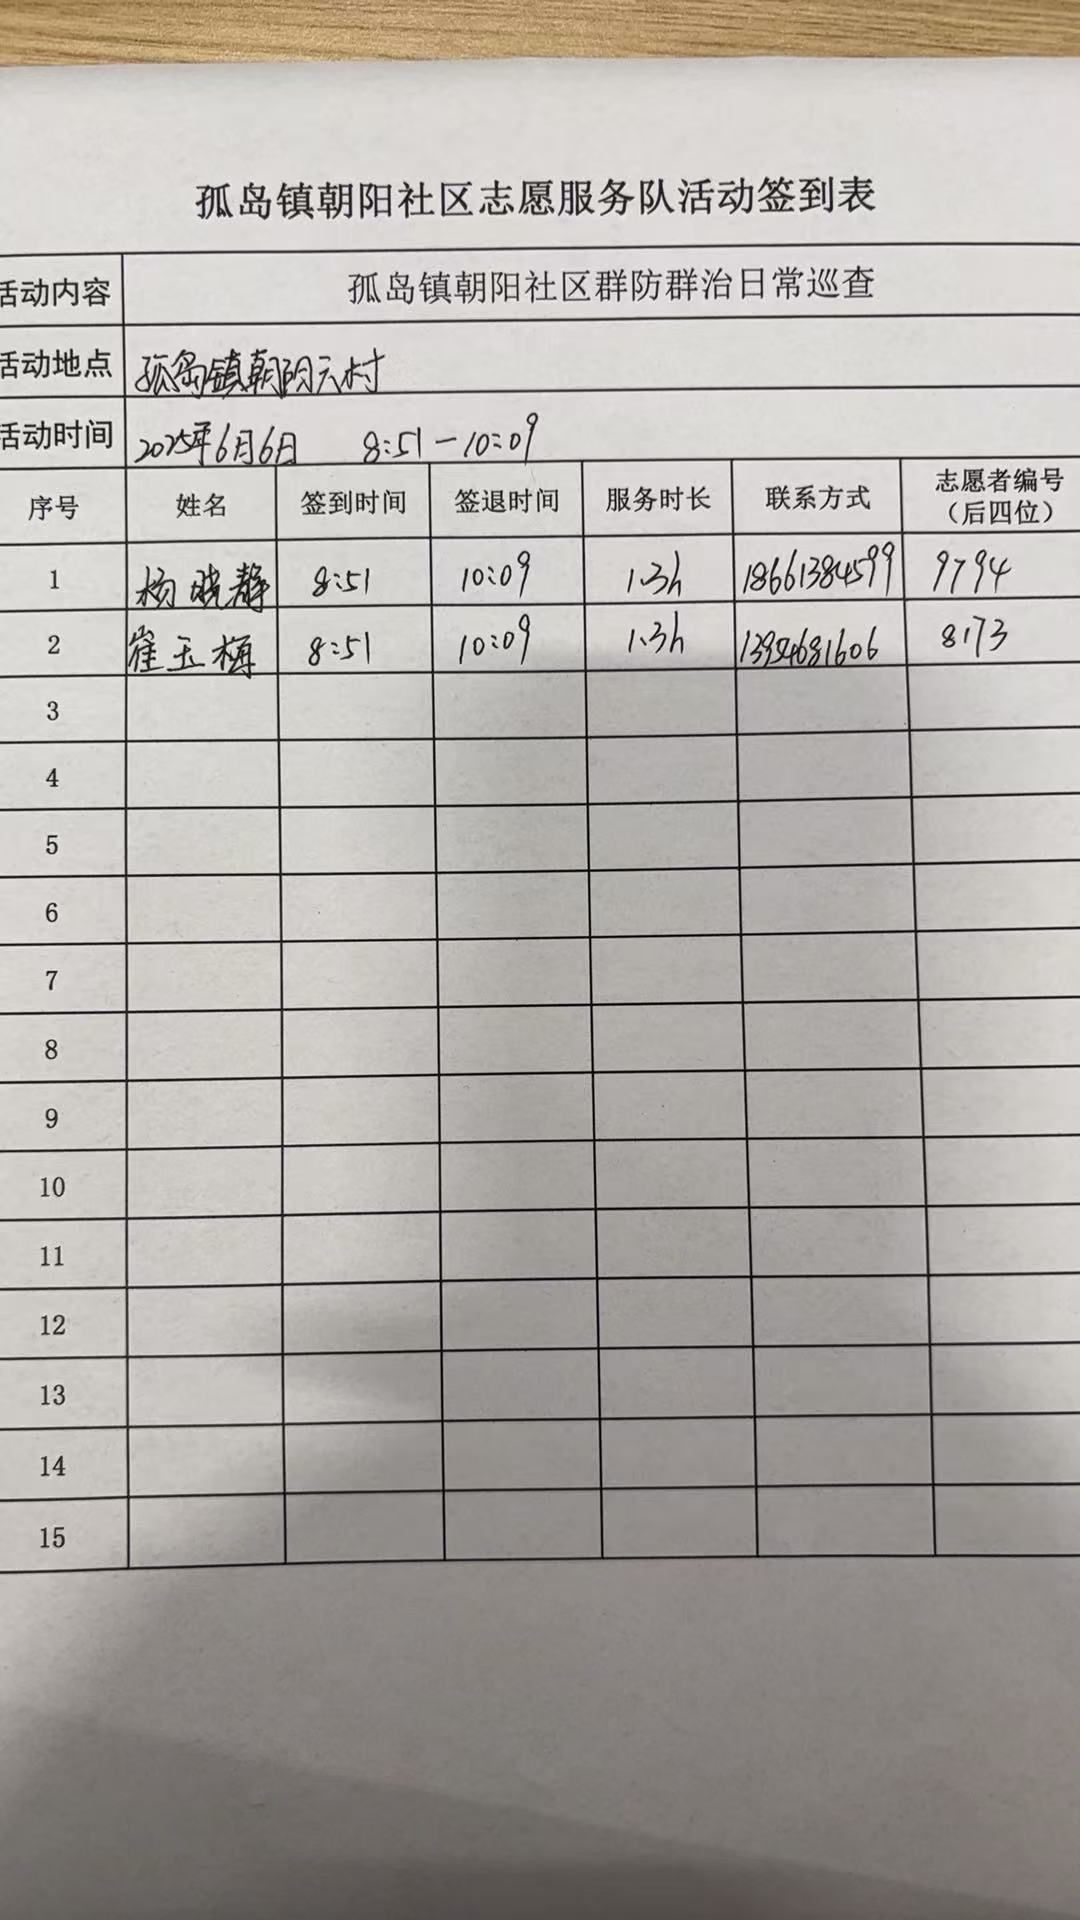 孤岛镇朝阳社区志愿服务队活动签到表
活动内容 孤岛镇朝阳社区群防群治日常巡查
活动地点 孤岛镇朝阳六村
活动时间 2025年6月6日 8:51-10:09
序号 姓名 签到时间 签退时间 服务时长 联系方式 志愿者编号（后四位）
1 杨晓静 8:51 10:09 1.3h 18661384599 9794
2 崔玉梅 8:51 10:09 1.3h 13954681606 8173
3
4
5
6
7
8
9
10
11
12
13
14
15